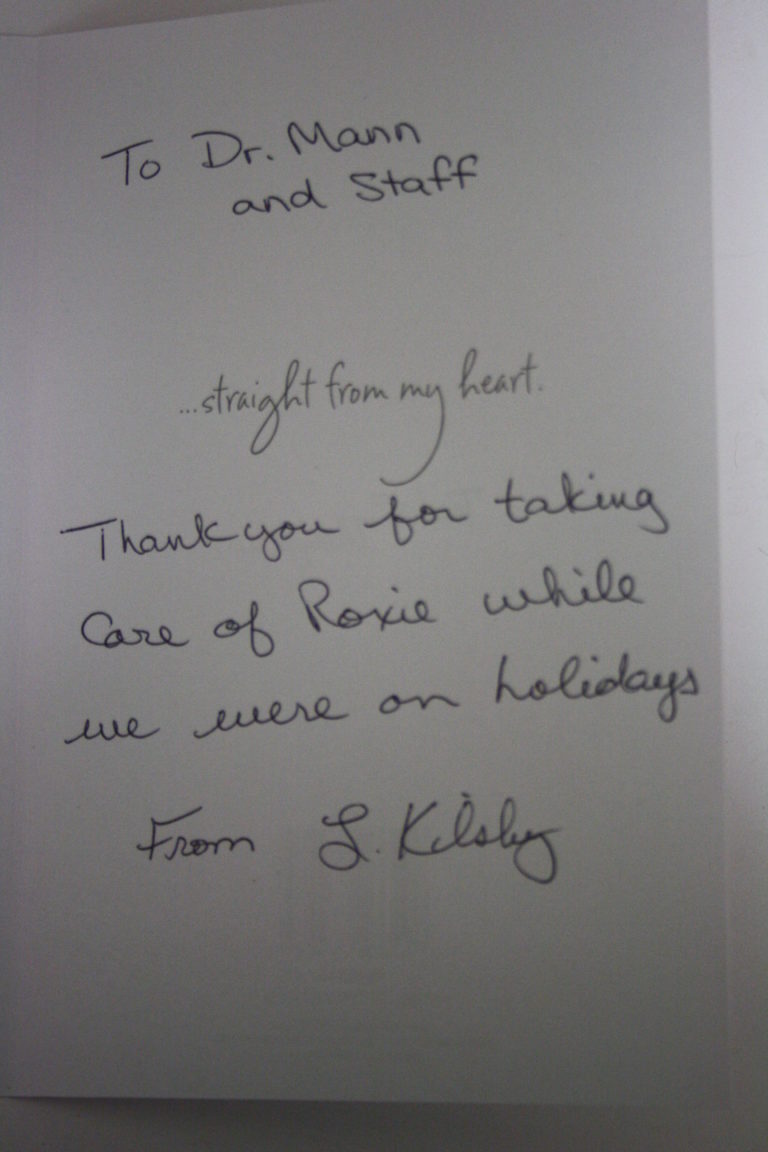 To Dr. Mann
and Staff
...straight from my heart.
Thank you for taking
Care of Roxie while
we were on holidays
From L. Kilsby